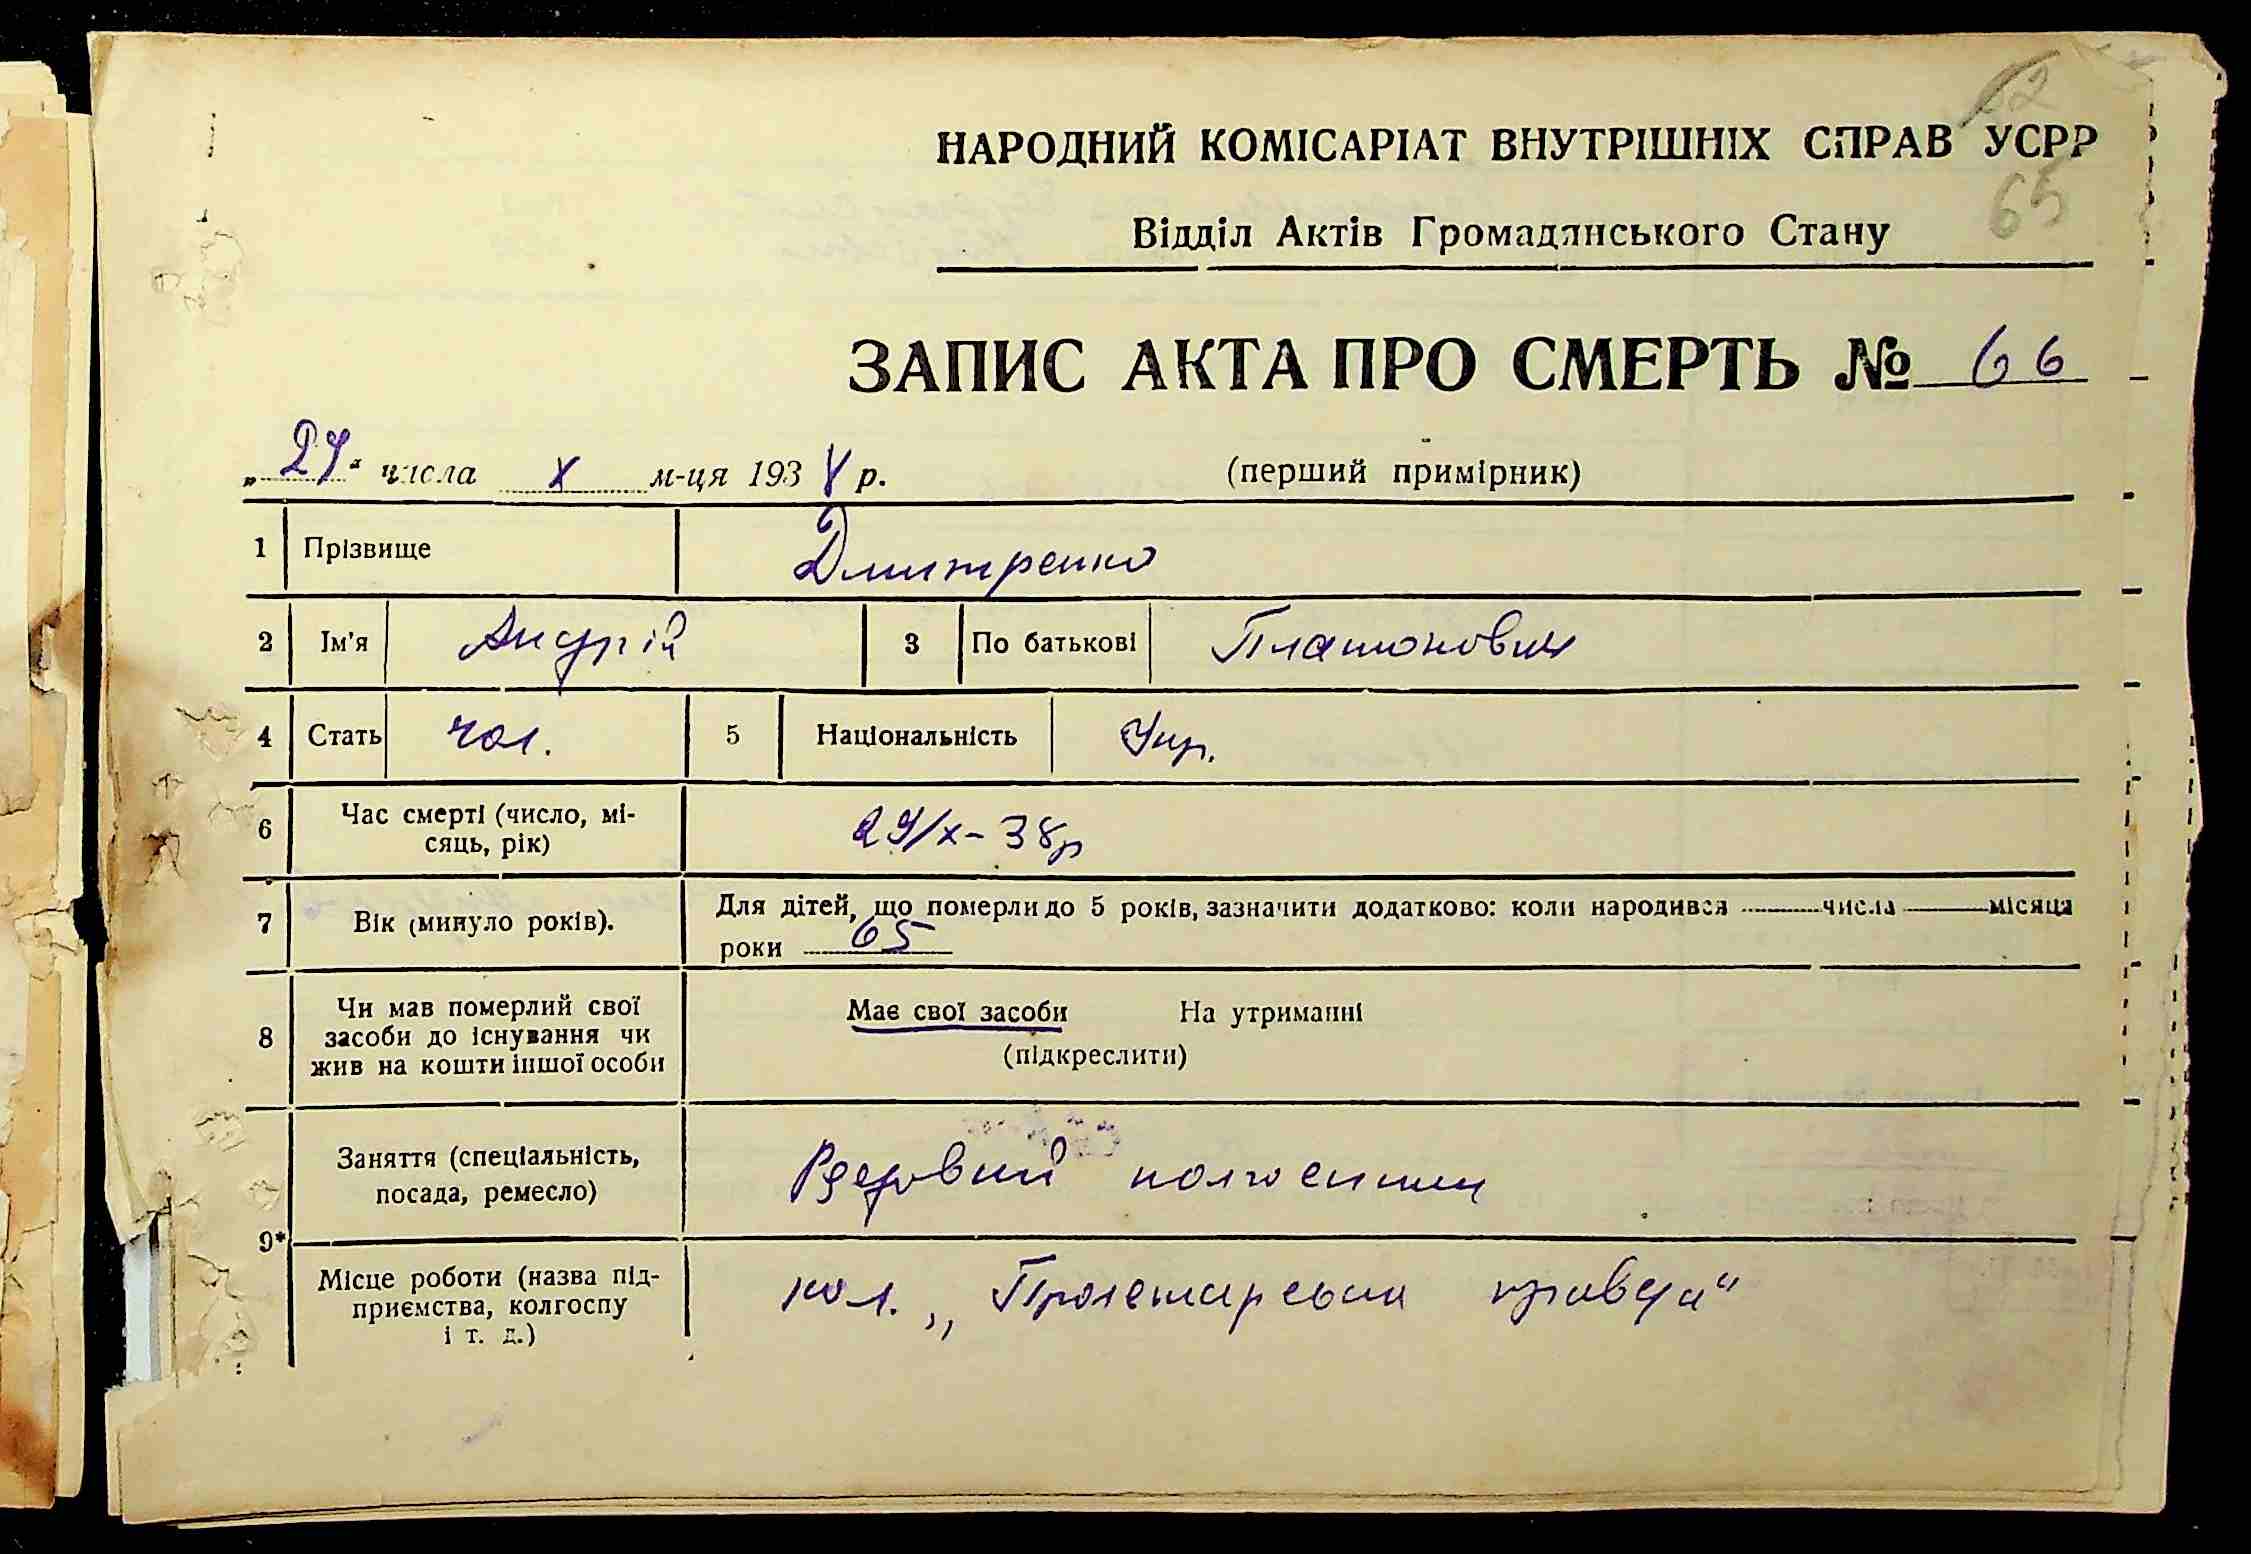 62
НАРОДНИЙ КОМІСАРІАТ ВНУТРІШНІХ СПРАВ УСРР
65
Відділ Актів Громадянського Стану
ЗАПИС АКТА ПРО СМЕРТЬ № 66
„27“ числа X м-ця 1938 р. (перший примірник)
1 Прізвище Дмитренко
2 Ім'я Андрій 3 По батькові Платонович
4 Стать чол. 5 Національність Укр.
6 Час смерті (число, мі-
сяць, рік) 27/X-38р
7 Вік (минуло років). Для дітей, що померли до 5 років, зазначити додатково: коли народився числа місяця
роки 65
8 Чи мав померлий свої
засоби до існування чи
жив на кошти іншої особи
Має свої засоби На утриманні
(підкреслити)
9* Заняття (спеціальність,
посада, ремесло) Рядовий колгоспник
Місце роботи (назва під-
приємства, колгоспу
і т. д.) кол. „Пролетарська правда“